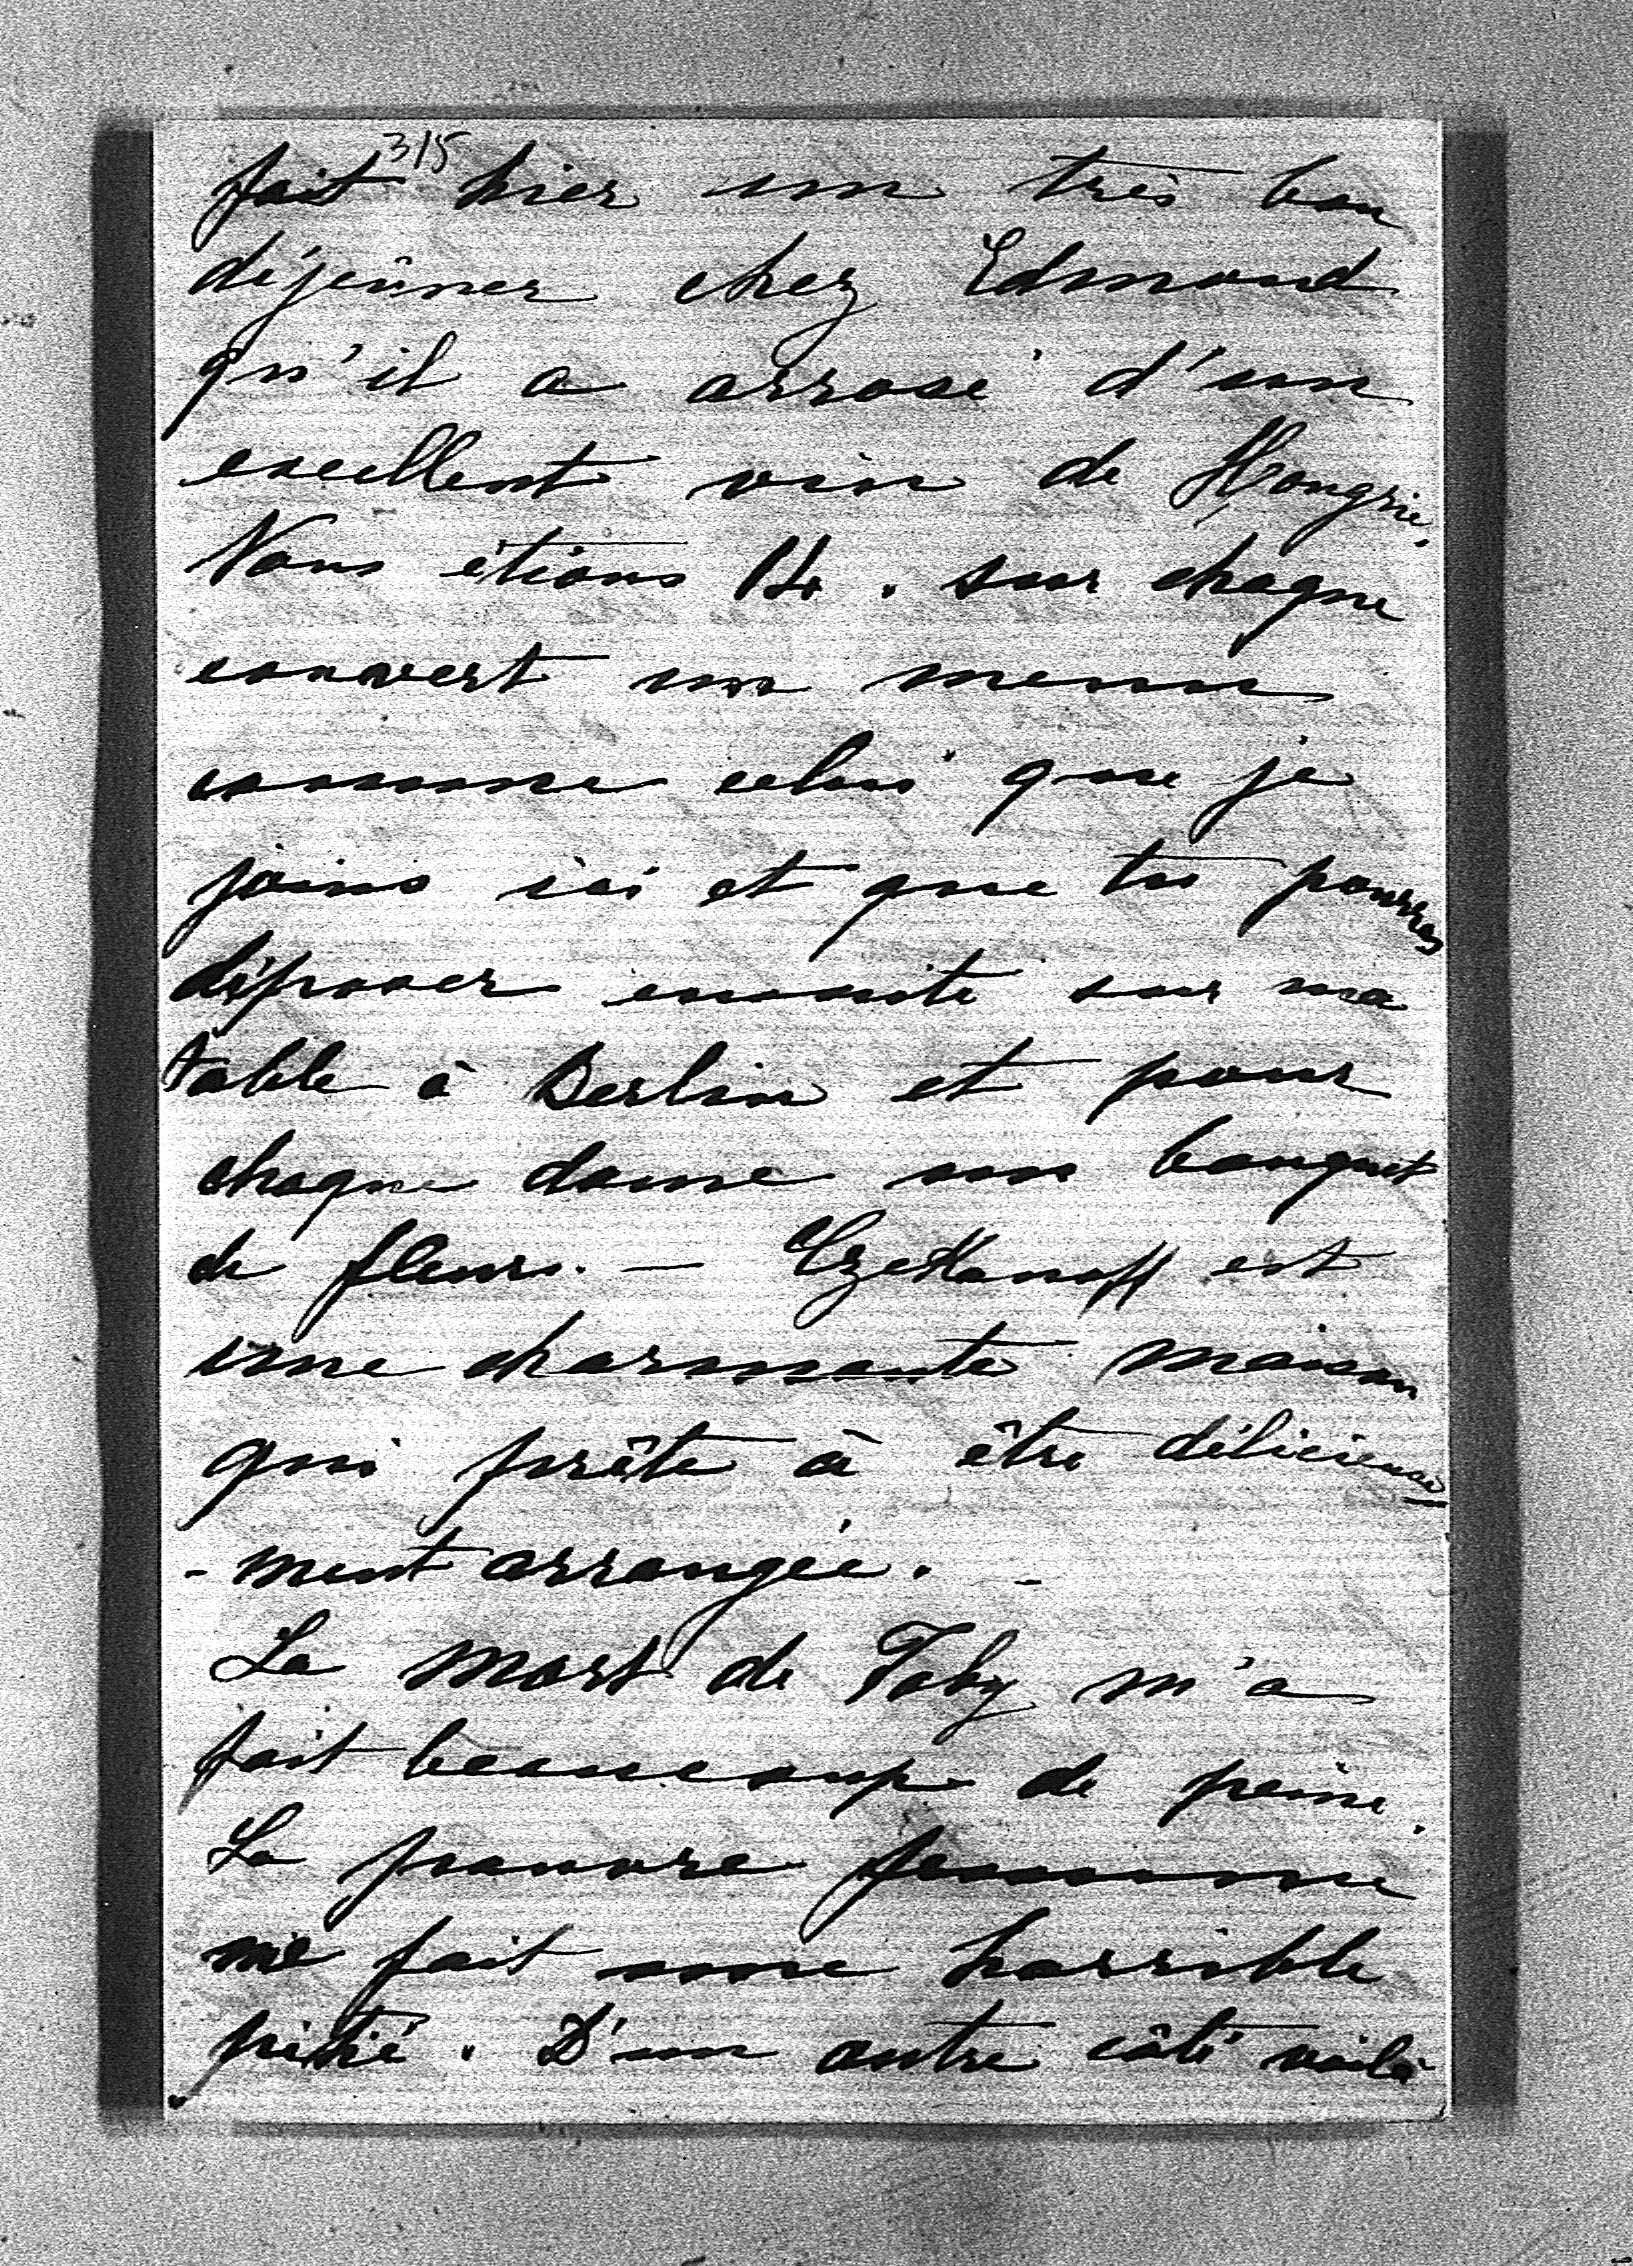 315
fait hier un très bon
déjeûner chez Edmond
qu'il a arrosé d'un
excellent vin de Hongrie.
Nous étions 14. sur chaque
couvert un menu
comme celui que je
joins ici et que tu pourras
déposer ensuite sur ma
table à Berlin et pour
chaque dame un bouquet
de fleurs. — Czekanoff est
une charmante maison
qui prête à être délicieuse-
-ment arrangée. -
La mort de Toby m'a
fait beaucoup de peine.
La pauvre femme
me fait une horrible
pitié. D'un autre côté voilà